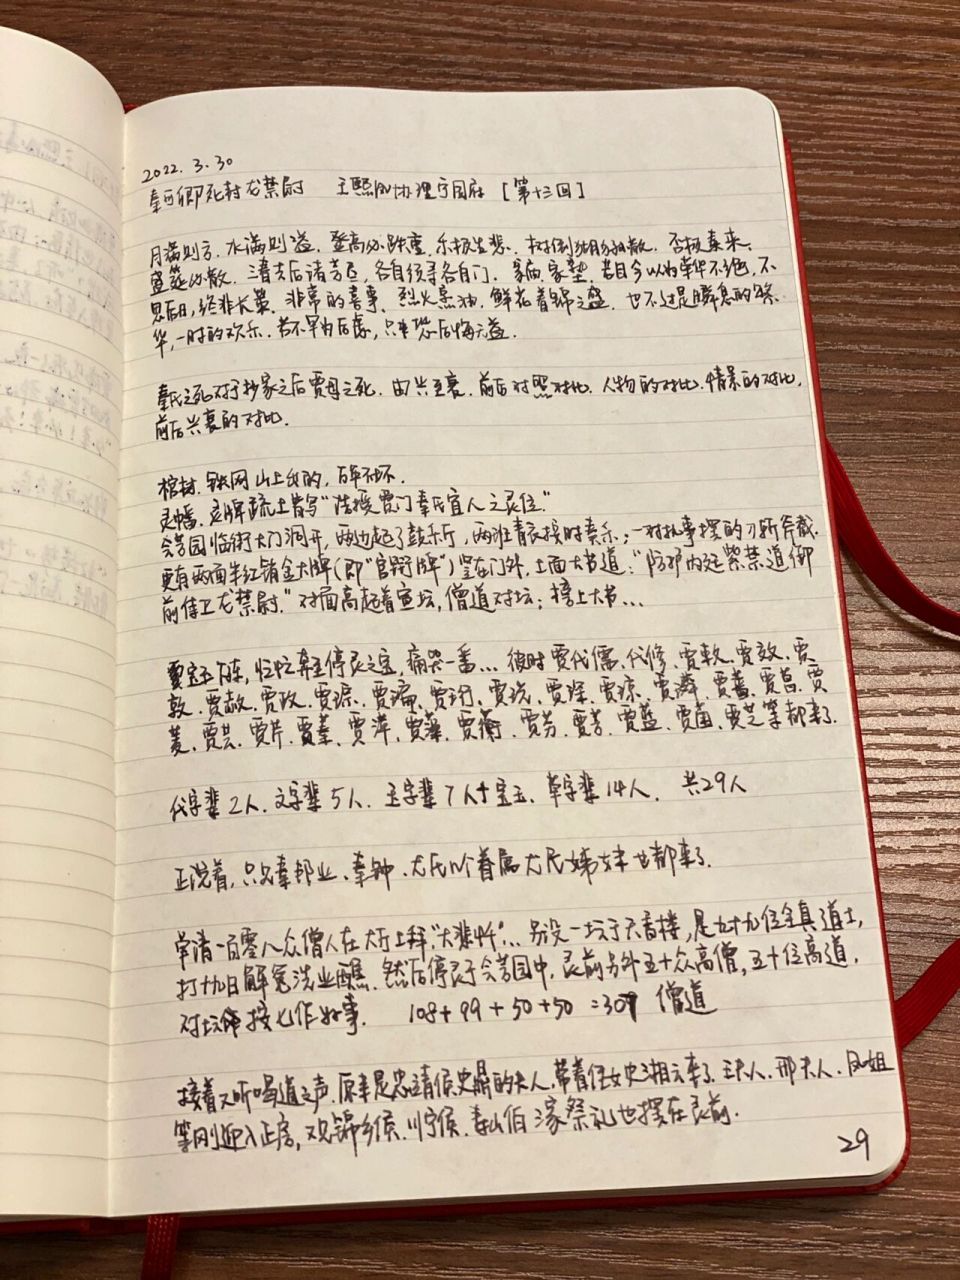 2022.3.30
秦可卿死封龙禁尉 王熙凤协理宁国府 [第十三回]
月满则亏,水满则溢.登高必跌重,乐极生悲,树倒猢狲散.否极泰来,
盛筵必散.三春去后诸芳尽,各自须寻各自门.家庙,家塾,若目今以为荣华不绝,不
思后日,终非长策.非常的喜事,烈火烹油,鲜花着锦之盛.也不过是瞬息的繁
华,一时的欢乐.若不早为后虑,只恐后悔无益.
秦氏之死对于抄家之后贾母之死.由兴至衰.前后对照对比.人物的对比.情景的对比,
前后兴衰的对比.
棺材.铁网山上出的,百年不坏.
灵幡、灵牌疏上皆写"诰授贾门秦氏宜人之灵位."
会芳园临街大门洞开,两边起了鼓乐厅,两班青衣按时奏乐;一对对执事摆的刀斩斧截.
更有两面朱红销金大牌(即"官衔牌")竖在门外,上面大书道:"防护内廷紫禁道御
前侍卫龙禁尉."对面高起着宣坛,僧道对坛;榜上大书...
贾宝玉下车,忙忙奔至停灵之室,痛哭一番...彼时贾代儒、代修、贾敕、贾效、贾
敦、贾赦、贾政、贾琮、贾㻞、贾珩、贾珖、贾琛、贾琼、贾璘、贾蔷、贾菖、贾
菱、贾芸、贾芹、贾蓁、贾萍、贾藻、贾蘅、贾芬、贾芳、贾蓝、贾菌、贾芝等都来了.
代字辈2人.文字辈5人.玉字辈7人+宝玉、草字辈14人. 共29人
正说着,只见秦邦业、秦钟、尤氏几个眷属尤氏姊妹也都来了.
单请一百零八众僧人在大厅上拜"大悲忏"...另设一坛于天香楼,是九十九位全真道士,
打十九日解冤洗业醮.然后停灵于会芳园中,灵前另外五十众高僧,五十位高道,
对坛按七作好事. 108+99+50+50=307 僧道
接着又听喝道之声.原来是忠靖侯史鼎的夫人,带着侄女史湘云来了.王夫人、邢夫人、凤姐
等刚迎入正房,又见锦乡侯、川宁侯、寿山伯三家祭礼也摆在灵前.
29